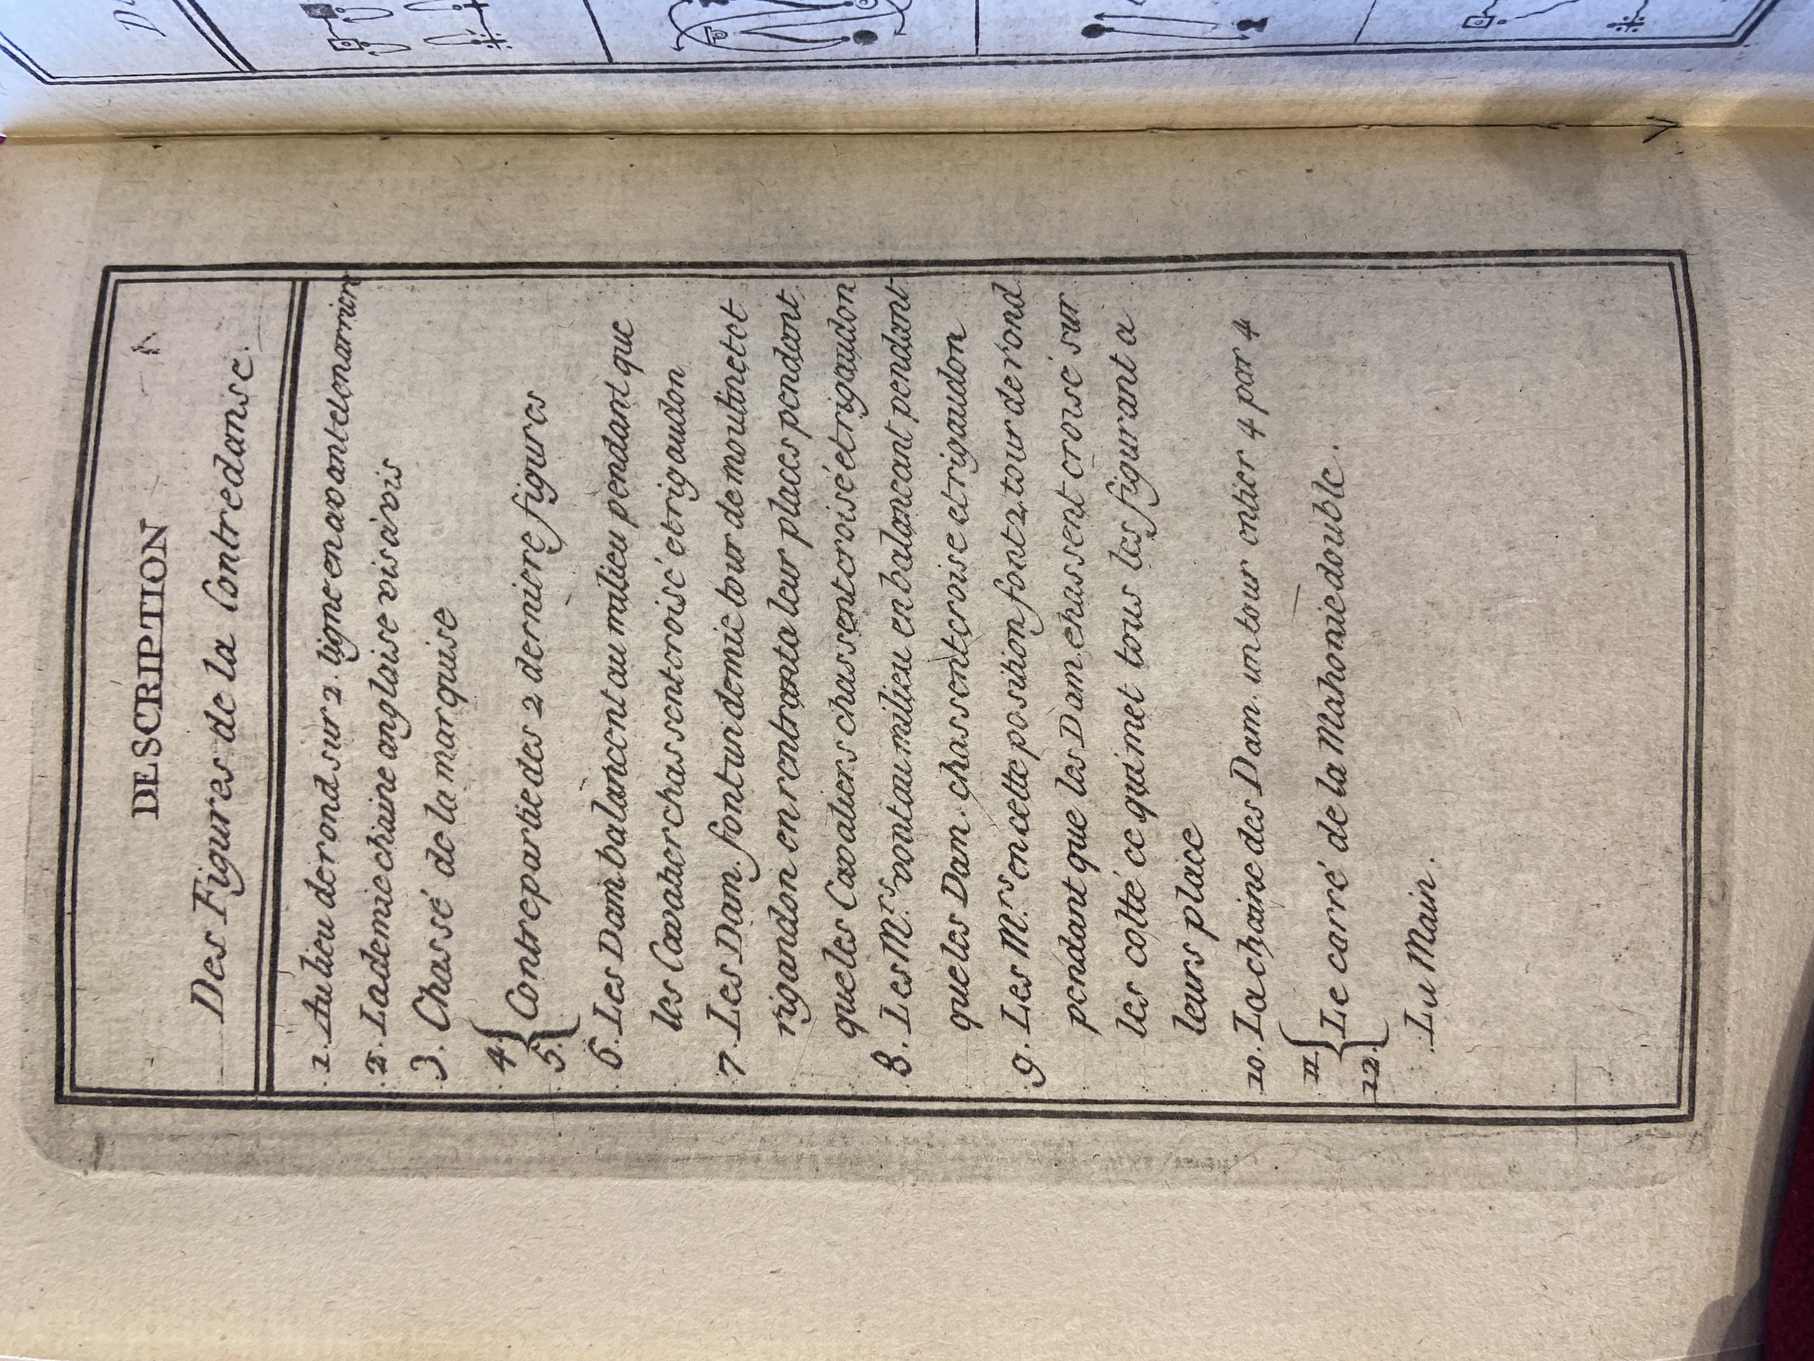 DESCRIPTION
Des Figures de la Contredanse.
1. Au lieu de rond sur 2. ligne en avant et en arriere
2. La demie chaine angloise vis à vis
3. Chassé de la marquise
4. 5. Contrepartie des 2 derniere figures
6. Les Dam balancent au milieu pendant que
les Cavalier chassent croisé et rigaudon
7 Les Dam. font un demie tour de moulinet et
rigaudon en rentrant a leur places pendant
que les Cavaliers chassent croisé et rigaudon
8. Les M.rs vont au milieu en balancant pendant
que les Dam. chassent croise et rigaudon
9. Les M.rs en cette position font 2. tour de rond
pendant que les Dam. chassent croisé sur
les colté ce qui met tous les figurant a
leurs place
10. La chaine des Dam. un tour entier 4 par 4
11. 12. Le carré de la Mahonie double.
Lu Main.